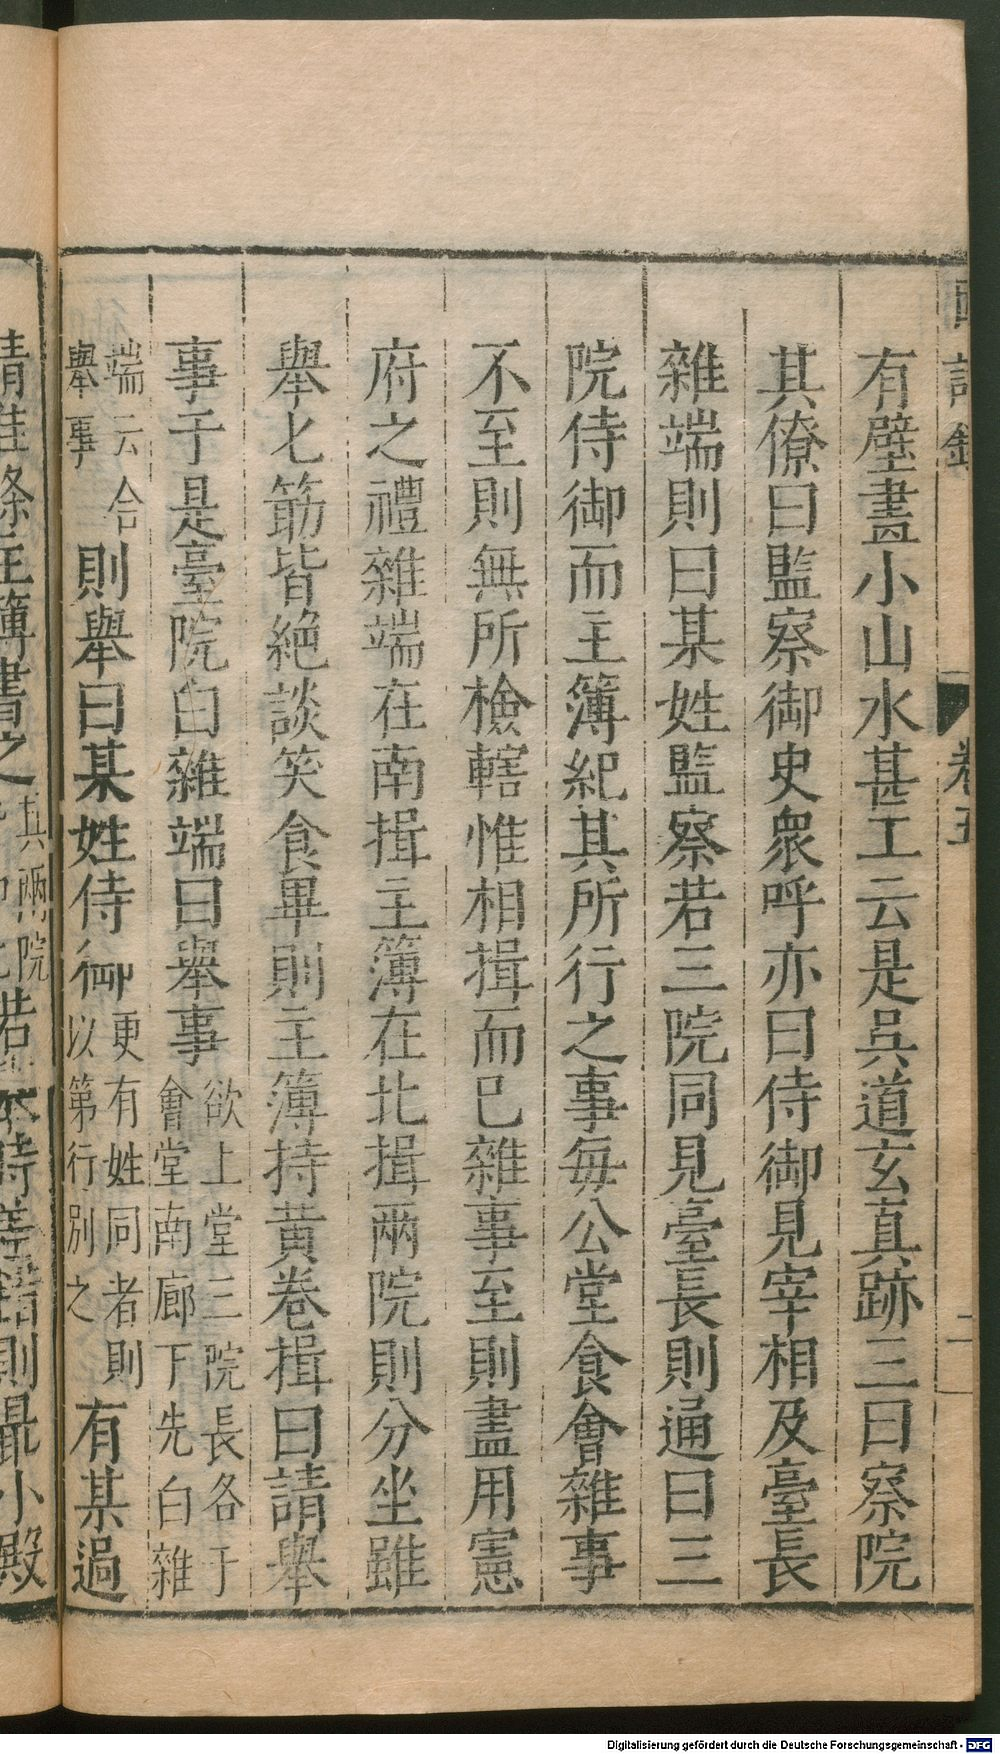 有壁畫小山水甚工云是吳道玄真跡三曰察院
其僚曰監察御史衆呼亦曰侍御見宰相及臺長
雜端則曰某姓監察若三院同見臺長則通曰三
院侍御而主簿紀其所行之事每公堂食會雜事
不至則無所檢轄惟相揖而已雜事至則盡用憲
府之禮雜端在南揖主簿在北揖兩院則分坐雖
舉匕筯皆絶談笑食畢則主簿持黃卷揖曰請舉
事于是臺院白雜端曰舉事欲上堂三院長各于會堂南廊下先白雜
端云合舉事則舉曰某姓侍御更有姓同者則以第行別之有某過
卷五
二
Digitalisierung gefördert durch die Deutsche Forschungsgemeinschaft - DFG